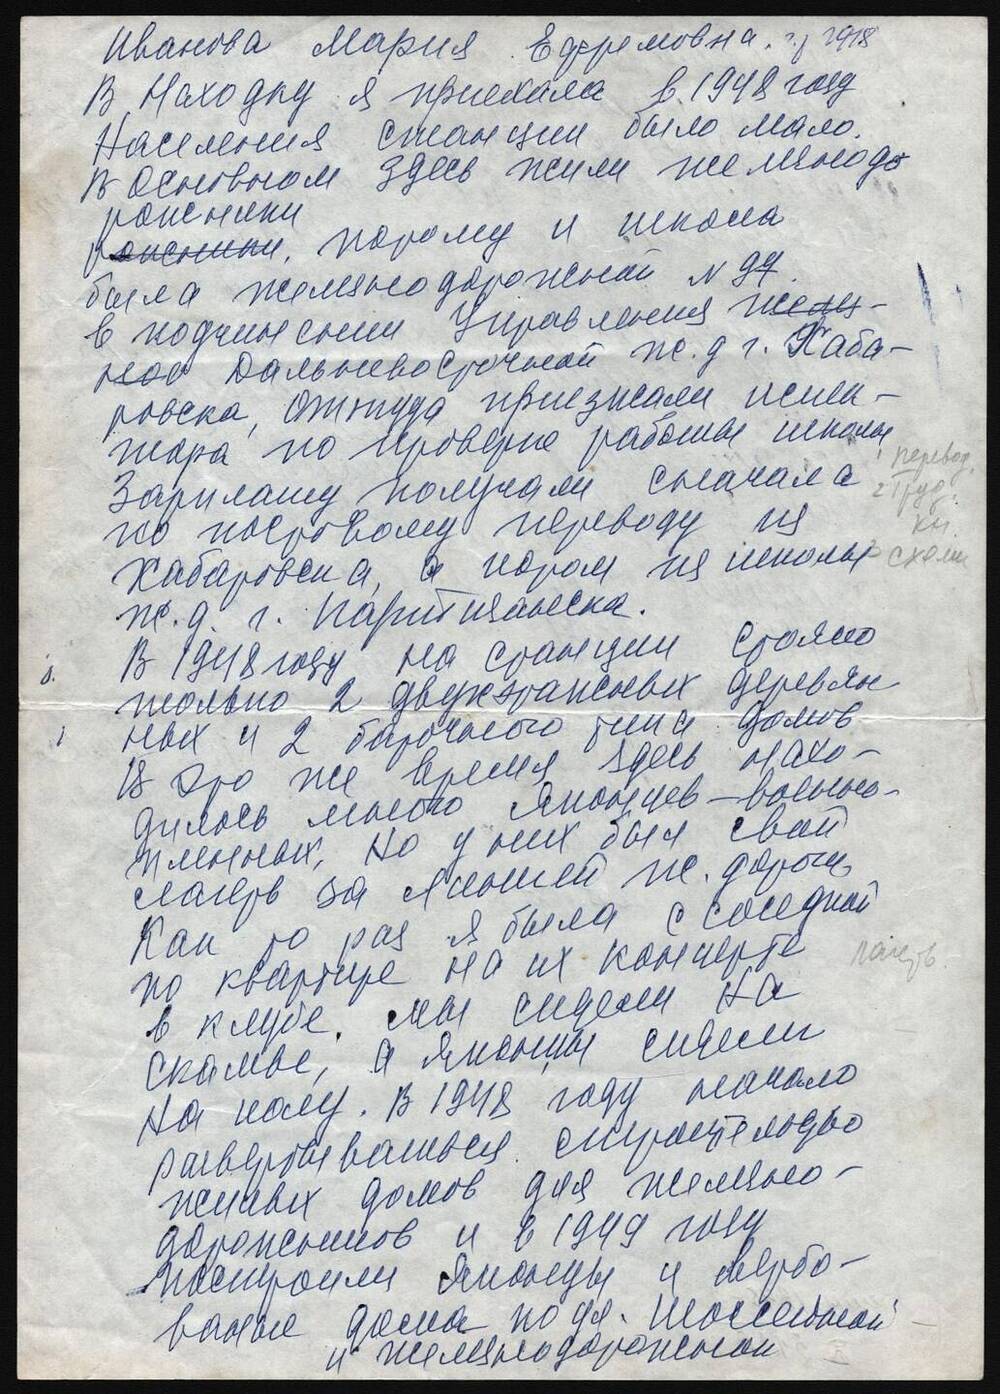 Иванова Мария Ефремовна. г.р 1918
В Находку я приехала в 1948 году
Населения станции было мало.
В основном здесь жили железнодо
рожники
рожники, потому и школа
была железнодорожной N 94
в подчинении Управления желез-
ной Дальневосточной ж.д г. Хаба-
ровска, оттуда приезжали
по проверке работы школы
Зарплату получали сначала
по почтовому переводу из
Хабаровска, а потом из школы
ж.д. г. Партизанска.
В 1948 году на станции стояло
только 2 двухэтажных деревян
ных и 2 барочного типа домов
В это же время здесь нахо-
дилось много Японцев - военно-
пленных, но у них был свой
лагерь за линией ж. дороги
Как то раз я была с соседкой
по квартире на их концерте
в клубе. мы сидели на
скамье, а Японцы сидели
на полу. В 1948 году начало
развертываться строительство
жилых домов для железно-
дорожников и в 1949 году
построили Японцы и вербо-
ваные дома по ул. Шоссейной
и железнодорожной
перевод.
2 Труд.
кн.
лагерь